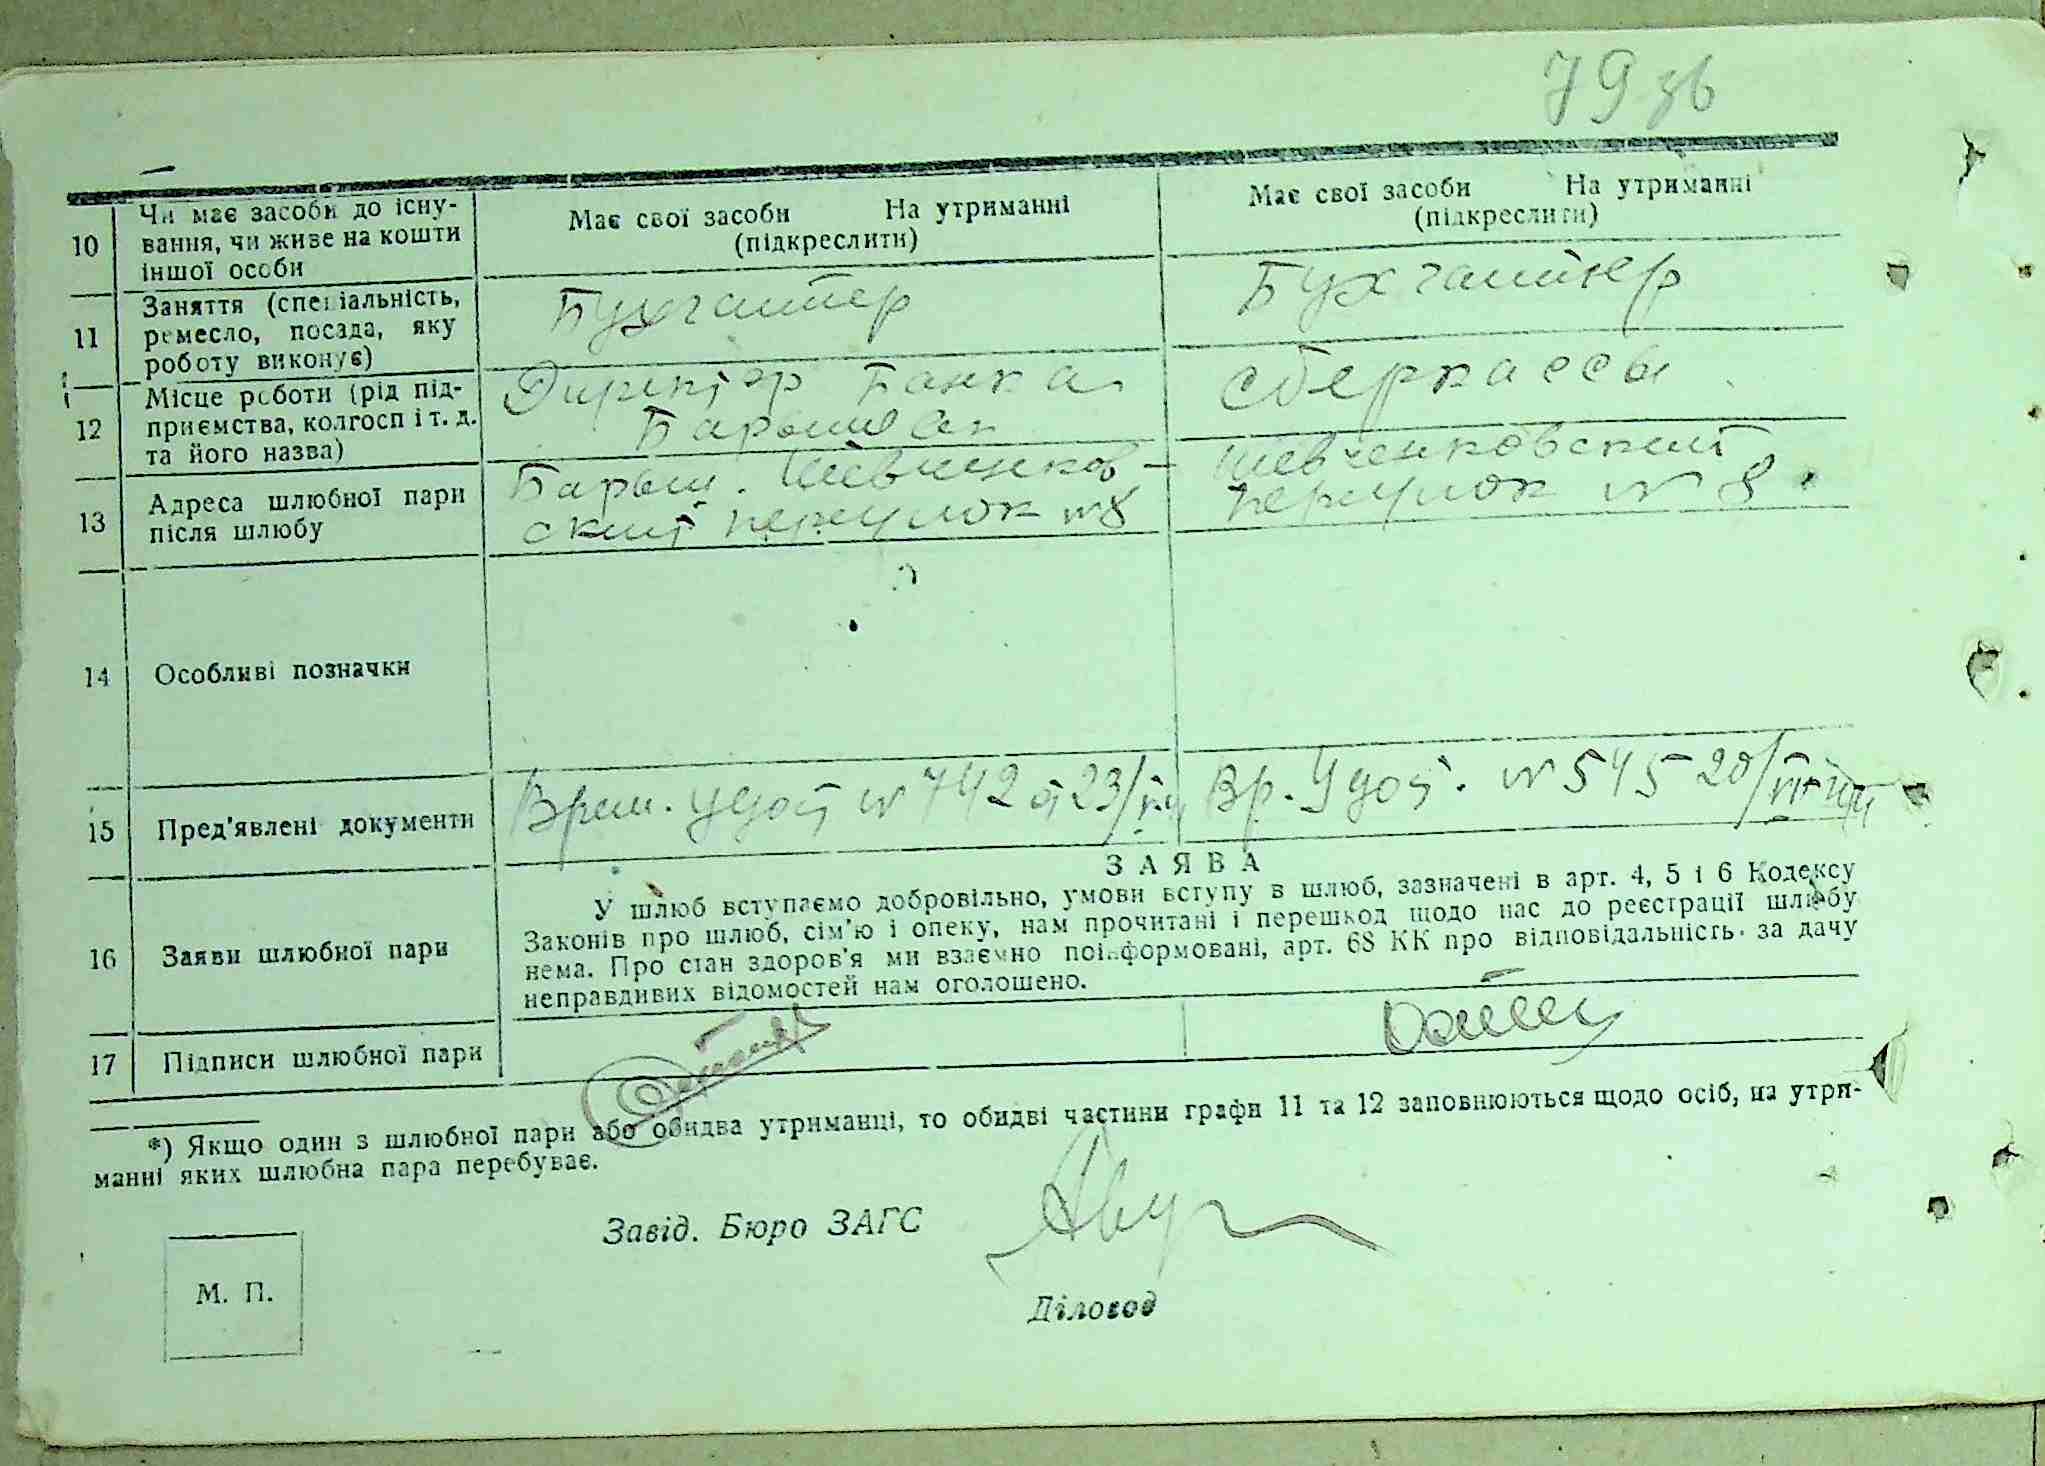 79 зв
10 Чи має засоби до існу-
вання, чи живе на кошти
іншої особи
Має свої засоби На утриманні
(підкреслити)
Має свої засоби На утриманні
(підкреслити)
11 Заняття (спеціальність,
ремесло, посада, яку
роботу виконує)
Бухгалтер
Бухгалтер
12 Місце роботи (рід під-
приємства, колгосп і т. д.
та його назва)
Директор Банка
сберкассы
13 Адреса шлюбної пари
після шлюбу
Барыш. Шевченков-
ский переулок №8
Шевченковский
переулок № 8.
14 Особливі позначки
15 Пред'явлені документи
Врем. удост № 742 от 23/
Вр. Удост. № 545 20/
16 Заяви шлюбної пари
ЗАЯВА
У шлюб вступаємо добровільно, умови вступу в шлюб, зазначені в арт. 4, 5 і 6 Кодексу
Законів про шлюб, сім'ю і опеку, нам прочитані і перешкод щодо нас до реєстрації шлюбу
нема. Про стан здоров'я ми взаємно поінформовані, арт. 68 КК про відповідальність за дачу
неправдивих відомостей нам оголошено.
17 Підписи шлюбної пари
*) Якщо один з шлюбної пари або обидва утриманці, то обидві частини графи 11 та 12 заповнюються щодо осіб, на утри-
манні яких шлюбна пара перебуває.
Завід. Бюро ЗАГС
М. П.
Діловод